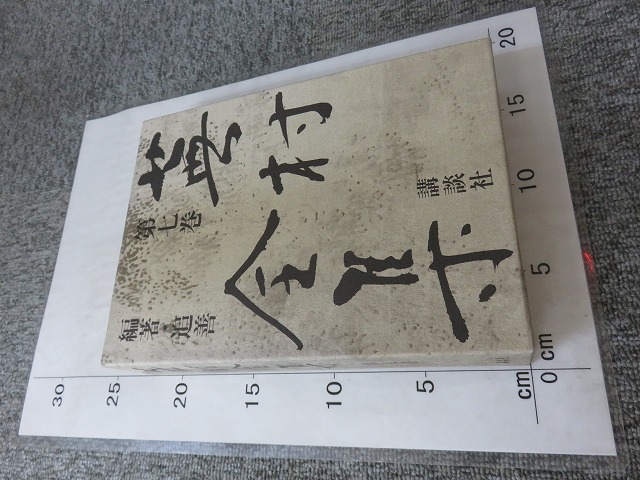 蕪村全集
第七巻
編著・追善
講談社
20
15
10
5
0 cm
cm
5
10
15
20
25
30